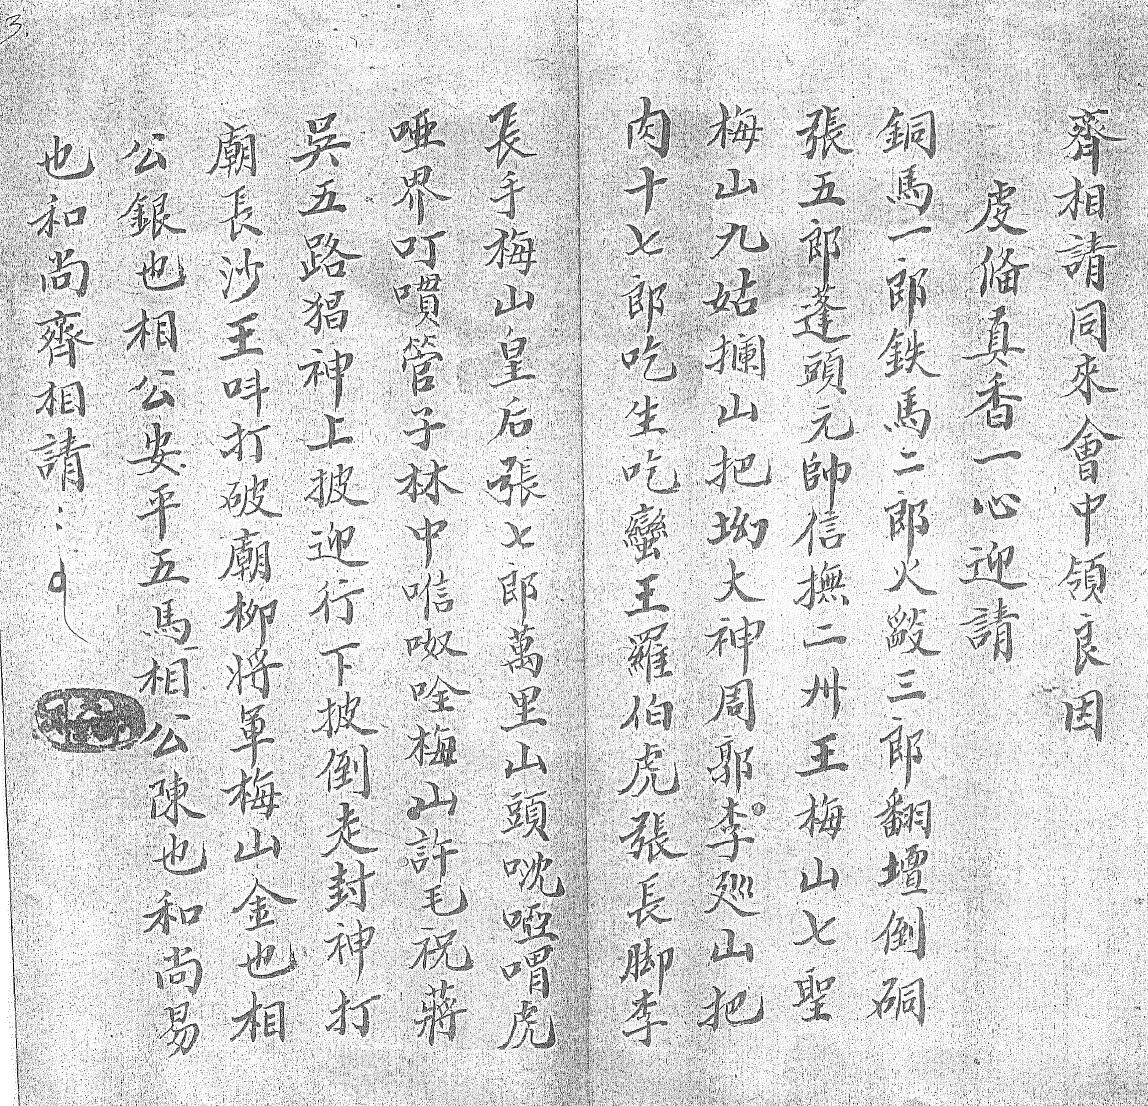 齊相請同來會中領良因
虔俻真香一心迎請
銅馬一郎鉄馬二郎火毇三郎翻壇倒硐
張五郎蓬頭元帥信撫二州王梅山七聖
梅山九姑攔山把坳大神周郭李巡山把
肉十七郎吃生吃蠻王羅伯虎張長脚李
長手梅山皇后張七郎萬里山頭啞喟虎
啞界叮嘪管子林中唫梅山許毛祝蔣
吳五路猖神上披迎行下披倒走封神打
廟長沙王呌打破廟柳将軍梅山金也相
公銀也相公安平五馬相公陳也和尚易
也和尚齊相請
3